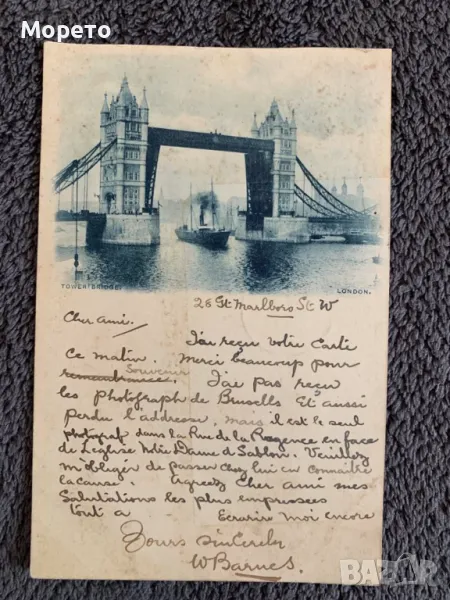 Морето
TOWER BRIDGE.
LONDON.
26 Gt. Marlboro St. W
Cher ami.
J'ai reçu votre carte
ce matin. Merci beaucoup pour
Souvenir
remembrance. J'ai pas reçu
les photograph de Brusells Et aussi
perdu l'addresse, mais il est le seul
photograf dans la Rue de la Regence en face
de L'eglise Notre Dame d Sablon. Veuillez
m'obliger de passer chez lui en connaitre
la cause. Agreez Cher ami mes
Salutations les plus empressees
tout a Ecrarir moi encore
Yours sincerely
W Barnes.
bazar.bg